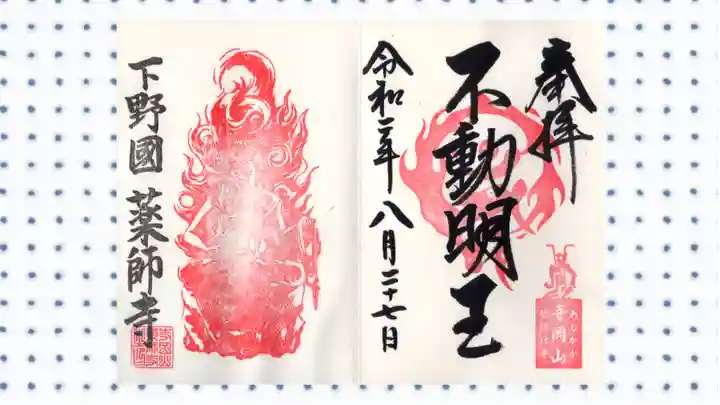 奉拝
不動明王
令和二年八月二十七日
寺岡山
あしかが
下野國薬師寺